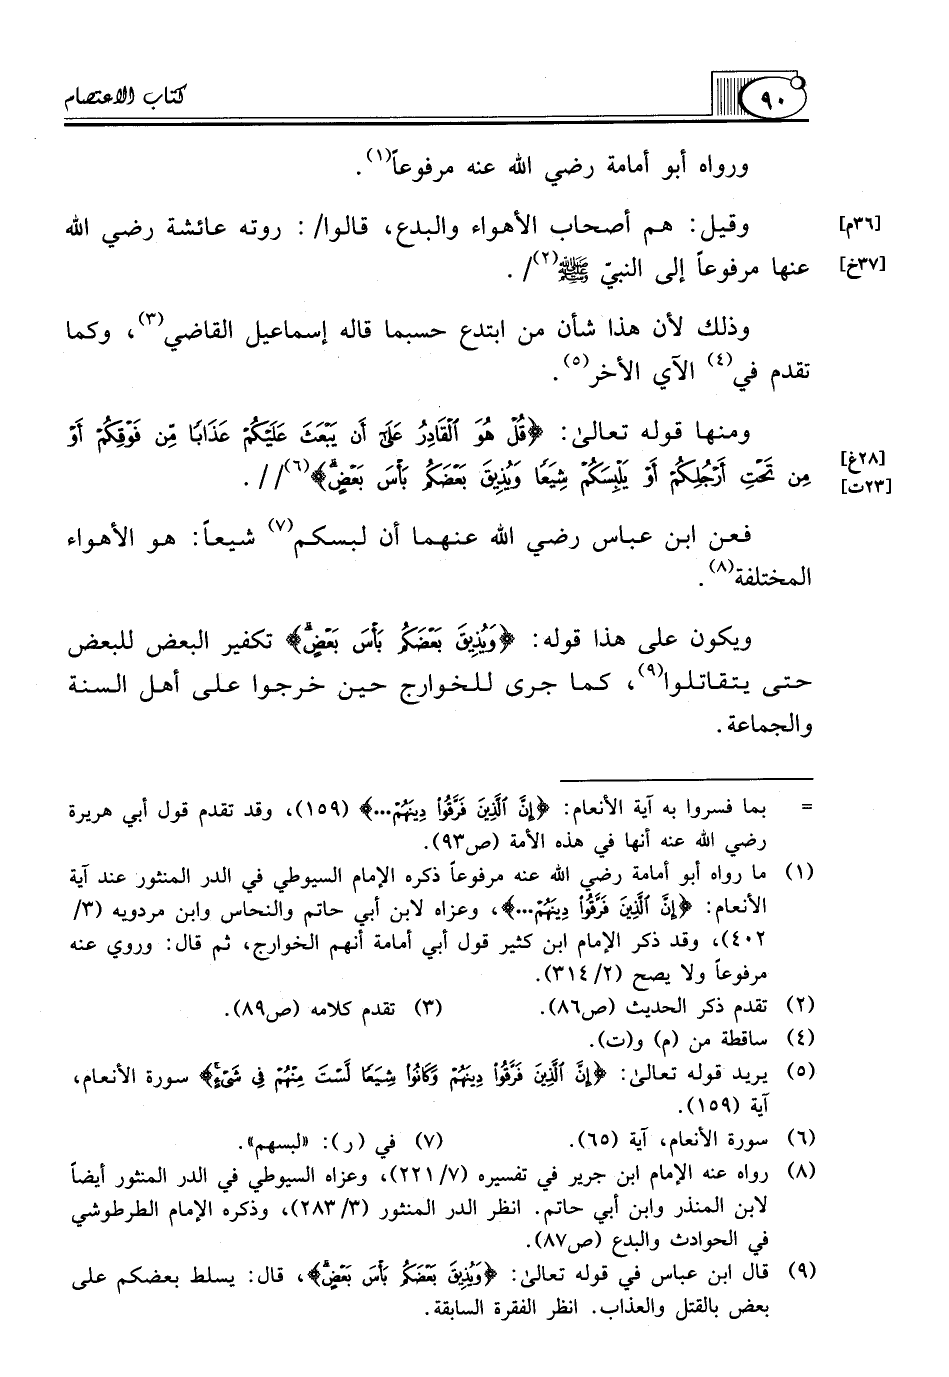 ٩٠ كتاب الاعتصام
ورواه أبو أمامة رضي الله عنه مرفوعاً(١).
[٣٦م] وقيل: هم أصحاب الأهواء والبدع، قالوا/: روته عائشة رضي الله
[٣٧خ] عنها مرفوعاً إلى النبيّ ﷺ(٢)/.
وذلك لأن هذا شأن من ابتدع حسبما قاله إسماعيل القاضي(٣)، وكما
تقدم في(٤) الآي الأخر(٥).
ومنها قوله تعالىٰ: ﴿قُلْ هُوَ ٱلْقَادِرُ عَلَىٰٓ أَن يَبْعَثَ عَلَيْكُمْ عَذَابًا مِّن فَوْقِكُمْ أَوْ
[٢٨غ] [٢٣ت] مِن تَحْتِ أَرْجُلِكُمْ أَوْ يَلْبِسَكُمْ شِيَعًا وَيُذِيقَ بَعْضَكُم بَأْسَ بَعْضٍ﴾(٦)//.
فعن ابن عباس رضي الله عنهما أن لبسكم(٧) شيعاً: هو الأهواء
المختلفة(٨).
ويكون على هذا قوله: ﴿وَيُذِيقَ بَعْضَكُم بَأْسَ بَعْضٍ﴾ تكفير البعض للبعض
حتى يتقاتلوا(٩)، كما جرى للخوارج حين خرجوا على أهل السنة
والجماعة.
= بما فسروا به آية الأنعام: ﴿إِنَّ ٱلَّذِينَ فَرَّقُواْ دِينَهُمْ...﴾ (١٥٩)، وقد تقدم قول أبي هريرة
رضي الله عنه أنها في هذه الأمة (ص٩٣).
(١) ما رواه أبو أمامة رضي الله عنه مرفوعاً ذكره الإمام السيوطي في الدر المنثور عند آية
الأنعام: ﴿إِنَّ ٱلَّذِينَ فَرَّقُواْ دِينَهُمْ...﴾، وعزاه لابن أبي حاتم والنحاس وابن مردويه (٣/
٤٠٢)، وقد ذكر الإمام ابن كثير قول أبي أمامة أنهم الخوارج، ثم قال: وروي عنه
مرفوعاً ولا يصح (٣١٤/٢).
(٢) تقدم ذكر الحديث (ص٨٦). (٣) تقدم كلامه (ص٨٩).
(٤) ساقطة من (م) و(ت).
(٥) يريد قوله تعالىٰ: ﴿إِنَّ ٱلَّذِينَ فَرَّقُواْ دِينَهُمْ وَكَانُواْ شِيَعًا لَّسْتَ مِنْهُمْ فِى شَىْءٍ﴾ سورة الأنعام،
آية (١٥٩).
(٦) سورة الأنعام، آية (٦٥). (٧) في (ر): «لبسهم».
(٨) رواه عنه الإمام ابن جرير في تفسيره (٢٢١/٧)، وعزاه السيوطي في الدر المنثور أيضاً
لابن المنذر وابن أبي حاتم. انظر الدر المنثور (٢٨٣/٣)، وذكره الإمام الطرطوشي
في الحوادث والبدع (ص٨٧).
(٩) قال ابن عباس في قوله تعالىٰ: ﴿وَيُذِيقَ بَعْضَكُم بَأْسَ بَعْضٍ﴾، قال: يسلط بعضكم على
بعض بالقتل والعذاب. انظر الفقرة السابقة.